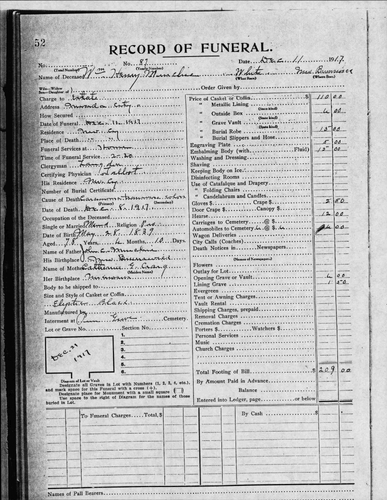 52
RECORD OF FUNERAL.
No. 81 Date, Dec 11 1917
(Total Number) (Yearly Number)
Name of Deceased, Wm Henry White New Brunswick
(What Race) (Where Born)
Wife-Widow
Son-Daughter of Order Given by
Charge to Estate
Address
Date of Funeral Dec 11, 1917
Residence
Place of Death
Funeral Services at Home
Time of Funeral Service 2:30
Clergyman
Certifying Physician Talbot
His Residence
Number of Burial Certificate
Cause of Death
Date of Death Dec 8, 1917
Occupation of the Deceased
Single or Married Religion
Date of Birth May 28, 1839
Aged 78 Years, 6 Months, 10 Days
Name of Father John
His Birthplace New Brunswick
Name of Mother Catherine E. Craig
Her Birthplace
Body to be shipped to
Size and Style of Casket or Coffin
Black
Manufactured by
Interment at Cemetery
Lot or Grave No. Section No.
1
2
3
4
5
6
Dec. 11
1917
Diagram of Lot or Vault
Designate all Graves in Lot with Numbers (1, 2, 3, 4, etc.),
and mark space for this Funeral with a cross (x)
Designate place for Monument with a small square
Use space to the right of Diagram for Names of those
buried in Lot.
Price of Casket or Coffin $ 110 00
" Metallic Lining
" Outside Box 6 00
" Grave Vault
" Burial Robe 15 00
" Burial Slippers and Hose
Engraving Plate 5 00
Embalming Body (with Fluid) 15 00
Washing and Dressing
Shaving
Keeping Body on Ice
Disinfecting Rooms
Use of Catafalque and Drapery
" Folding Chairs
" Candelabrum and Candles
Gloves $ Crape $ 5 50
Door Crape $ Candy $
Hearse 12 00
Carriages to Cemetery @ $
Automobiles to Cemetery
Wagon Deliveries
City Calls (Coaches)
Death Notices in Newspapers
(Names of Newspapers)
Flowers
Outlay for Lot
Opening Grave or Vault 6 00
Lining Grave 1 50
Evergreen
Tent or Awning Charges
Vault Rental
Shipping Charges, prepaid
Removal Charges
Cremation Charges
Porters $ Watchers $
Personal Services
Music
Church Charges
Total Footing of Bill $ 209 00
By Amount Paid in Advance
Balance
Entered into Ledger, page or below
To Funeral Charges Total, $ By Cash $
Names of Pall Bearers